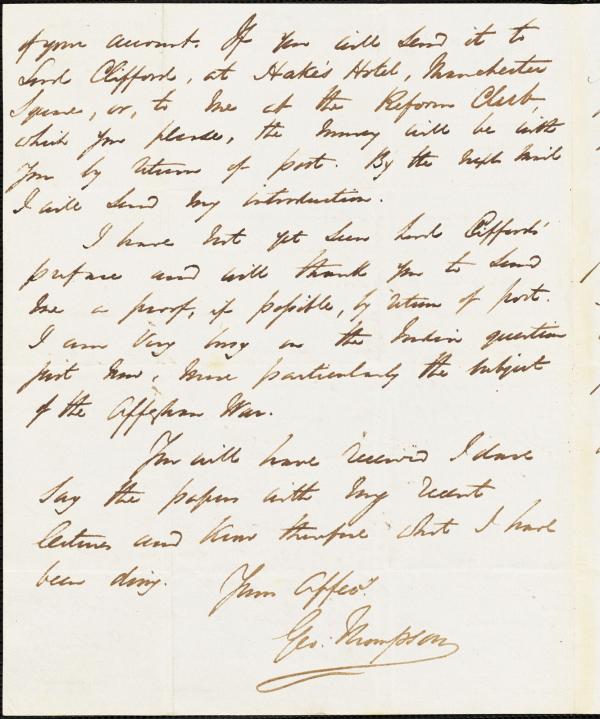 of your account. If you will send it to
Lord Clifford, at Hake's Hotel, Manchester
Square, or, to me at the Reform Club,
which you please, the money will be with
you by return of post. By the next mail
I will send my introduction.
I have not yet seen Lord Clifford's
preface and will thank you to send
me a proof, if possible, by return of post.
I am very busy on the Indian question
just now, more particularly the subject
of the Affghan War.
You will have received I dare
say the papers with my recent
lectures and know therefore what I have
been doing.
Yours Affecy.
Geo. Thompson